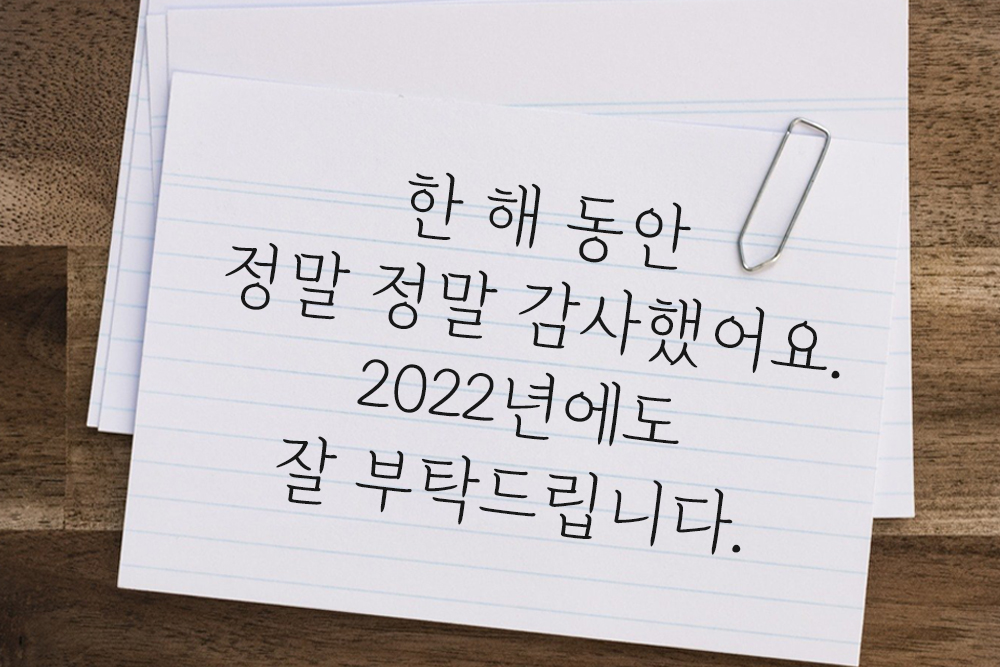 한 해 동안
정말 정말 감사했어요.
2022년에도
잘 부탁드립니다.